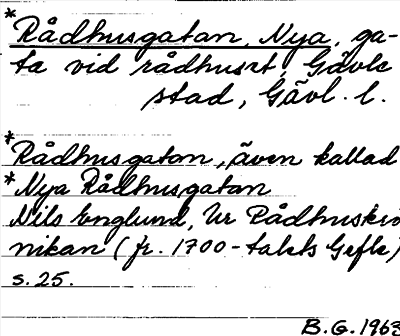 *Rådhusgatan, Nya, ga-
ta vid rådhuset, Gävle
stad, Gävl. l.
*Rådhusgatan, även kallad
*Nya Rådhusgatan
Nils Englund, Ur Rådhuskrö
nikan (fr. 1700-talets Gefle)
s. 25.
B.G. 1963